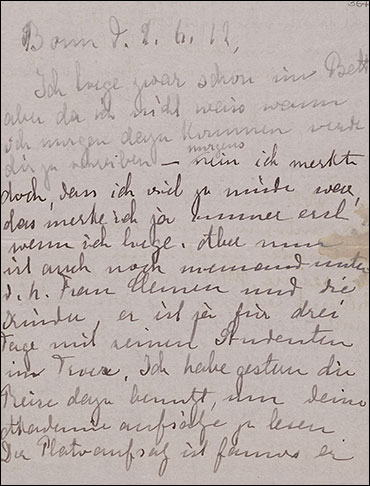 364
Bonn d. 2. 6. 12,
Ich liege zwar schon im Bett
aber da ich nicht weiss wann
ich morgen dazu kommen werde
dir zu schreiben — nein ich merkte
morgens
doch, dass ich viel zu müde war,
das merke ich ja immer erst
wenn ich liege. Aber nun
ist auch noch niemand unten
d. h. Frau Clemen und die
Kinder, er ist ja für drei
Tage mit seinen Studenten
in Trier. Ich habe gestern die
Reise dazu benutzt, um deine
Akademie aufsätze zu lesen
Der Platoaufsatz ist famos er